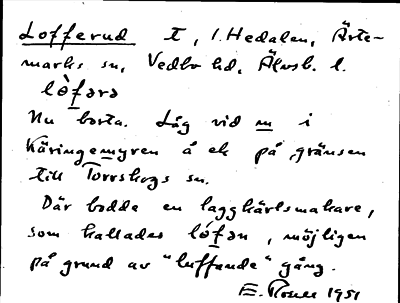 Lofferud t, i. Hedalen, Ärte-
marks sn, Vedbo hd, Älvsb. l.
lòfərə
Nu borta. Låg vid m i
Käringemyren å ek på gränsen
till Torrskogs sn.
Där bodde en laggkärlsmakare,
som kallades lófən, möjligen
på grund av "luffande" gång.
E. 1951